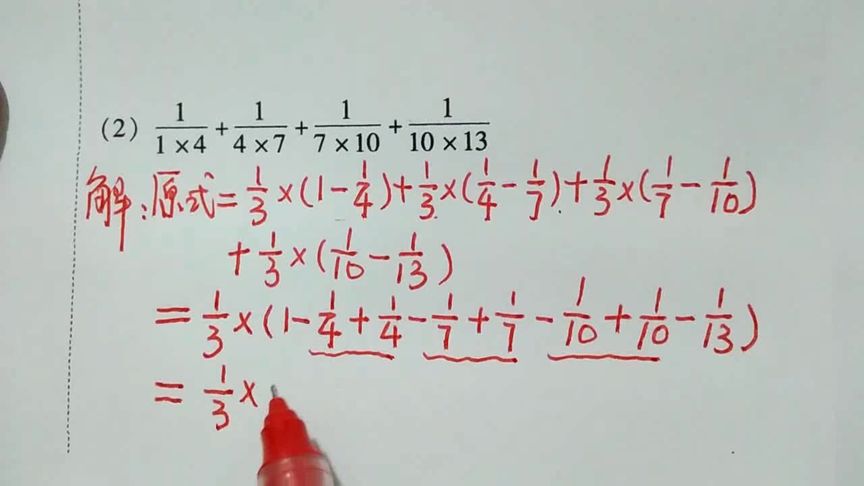 (2) 1/(1×4) + 1/(4×7) + 1/(7×10) + 1/(10×13)
解:原式=1/3×(1-1/4)+1/3×(1/4-1/7)+1/3×(1/7-1/10)
+1/3×(1/10-1/13)
=1/3×(1-1/4+1/4-1/7+1/7-1/10+1/10-1/13)
=1/3×